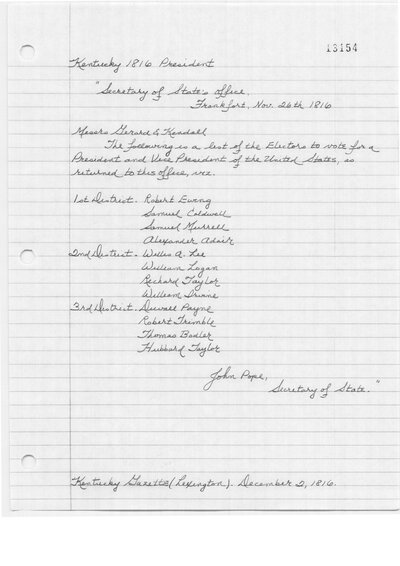 13154
Kentucky 1816 President
"Secretary of State's office,
Frankfort, Nov. 26th 1816
Messrs Gerard & Kendall
The following is a list of the Electors to vote for a
President and Vice President of the United States, as
returned to this office, viz.
1st District. Robert Ewing
Samuel Caldwell
Samuel Murrell
Alexander Adair
2nd District. Willis A. Lee
William Logan
Richard Taylor
William Irvine
3rd District. Duvall Payne
Robert Trimble
Thomas Bodler
Hubbard Taylor
John Pope,
Secretary of State."
Kentucky Gazette (Lexington). December 2, 1816.